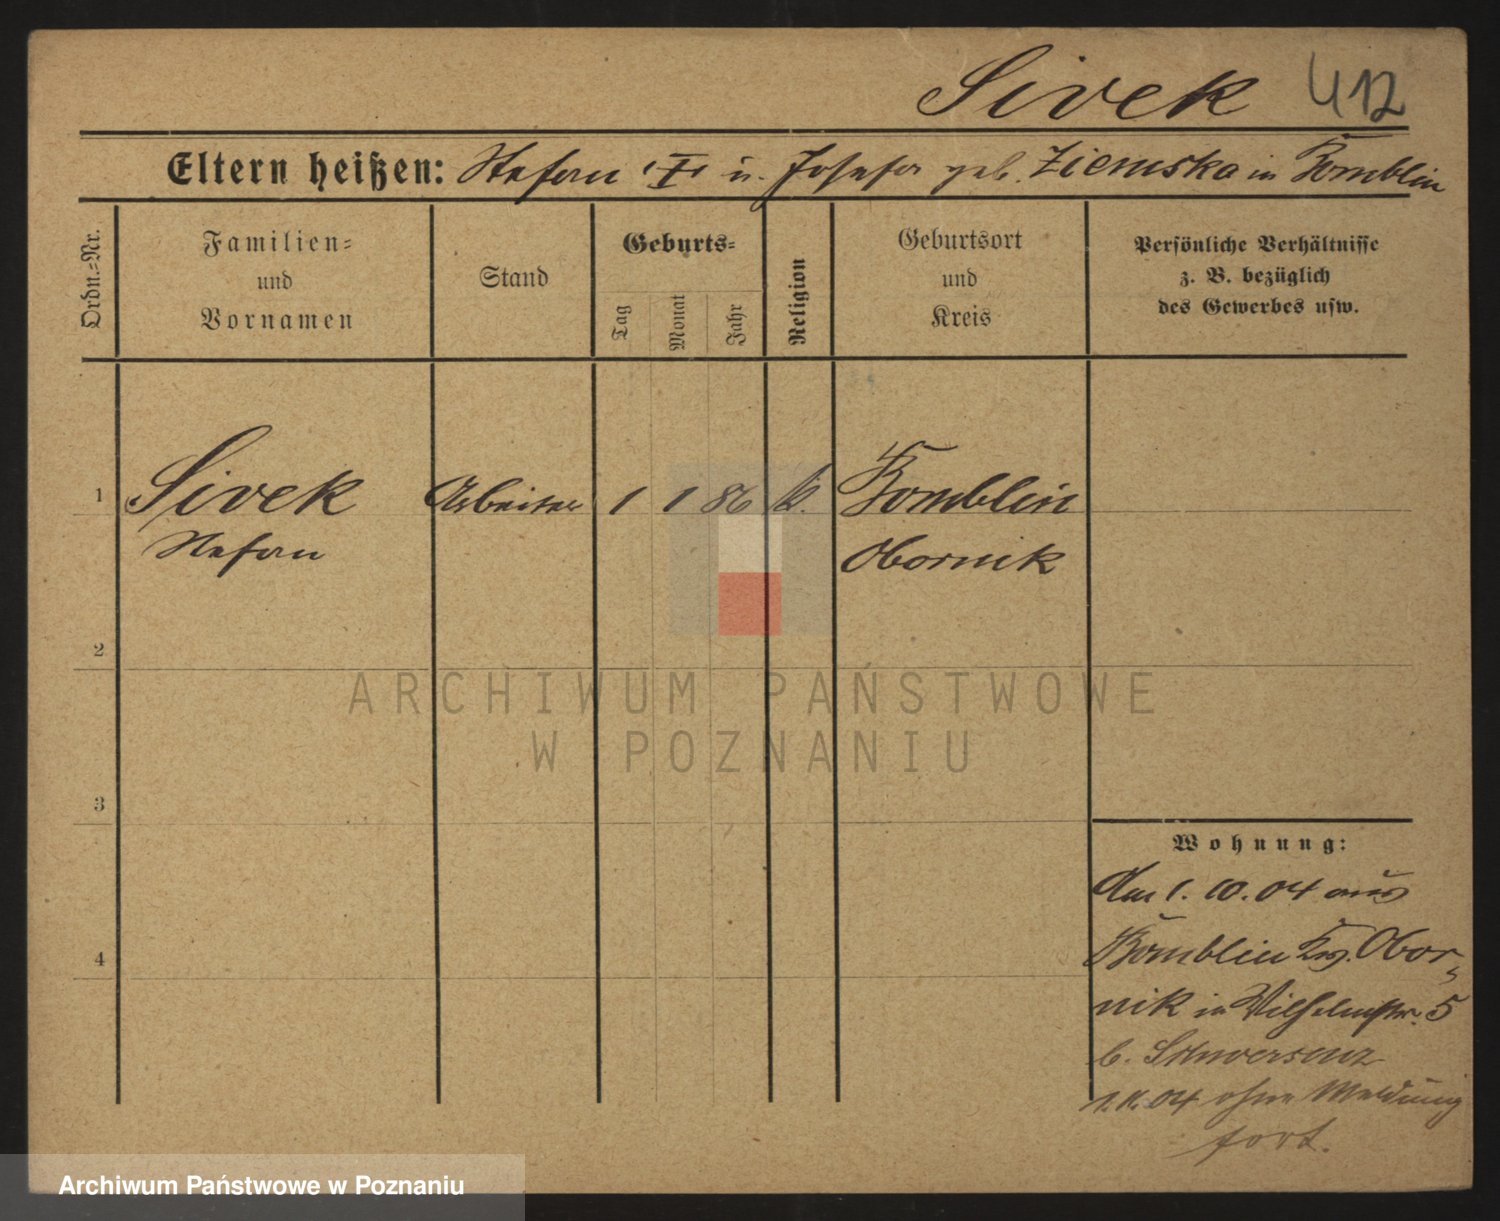 Sivek 412
Eltern heißen: Stefan "I" u. Josefa geb. Ziemska in Bomblin
Ordn.-Nr.
Familien-
und
Vornamen
Stand
Geburts-
Tag
Monat
Jahr
Religion
Geburtsort
und
Kreis
Persönliche Verhältnisse
z. B. bezüglich
des Gewerbes usw.
1 Sivek Arbeiter 1 1 86 k. Bomblin
Stefan Obornik
2
ARCHIWUM PAŃSTWOWE
W POZNANIU
3
Wohnung:
Am 1. 10. 04 aus
4 Bomblin Krs. Obor-
nik in Wilhelmstr. 5
b. Schwersenz
1.11.04 ohne Meldung
fort.
Archiwum Państwowe w Poznaniu